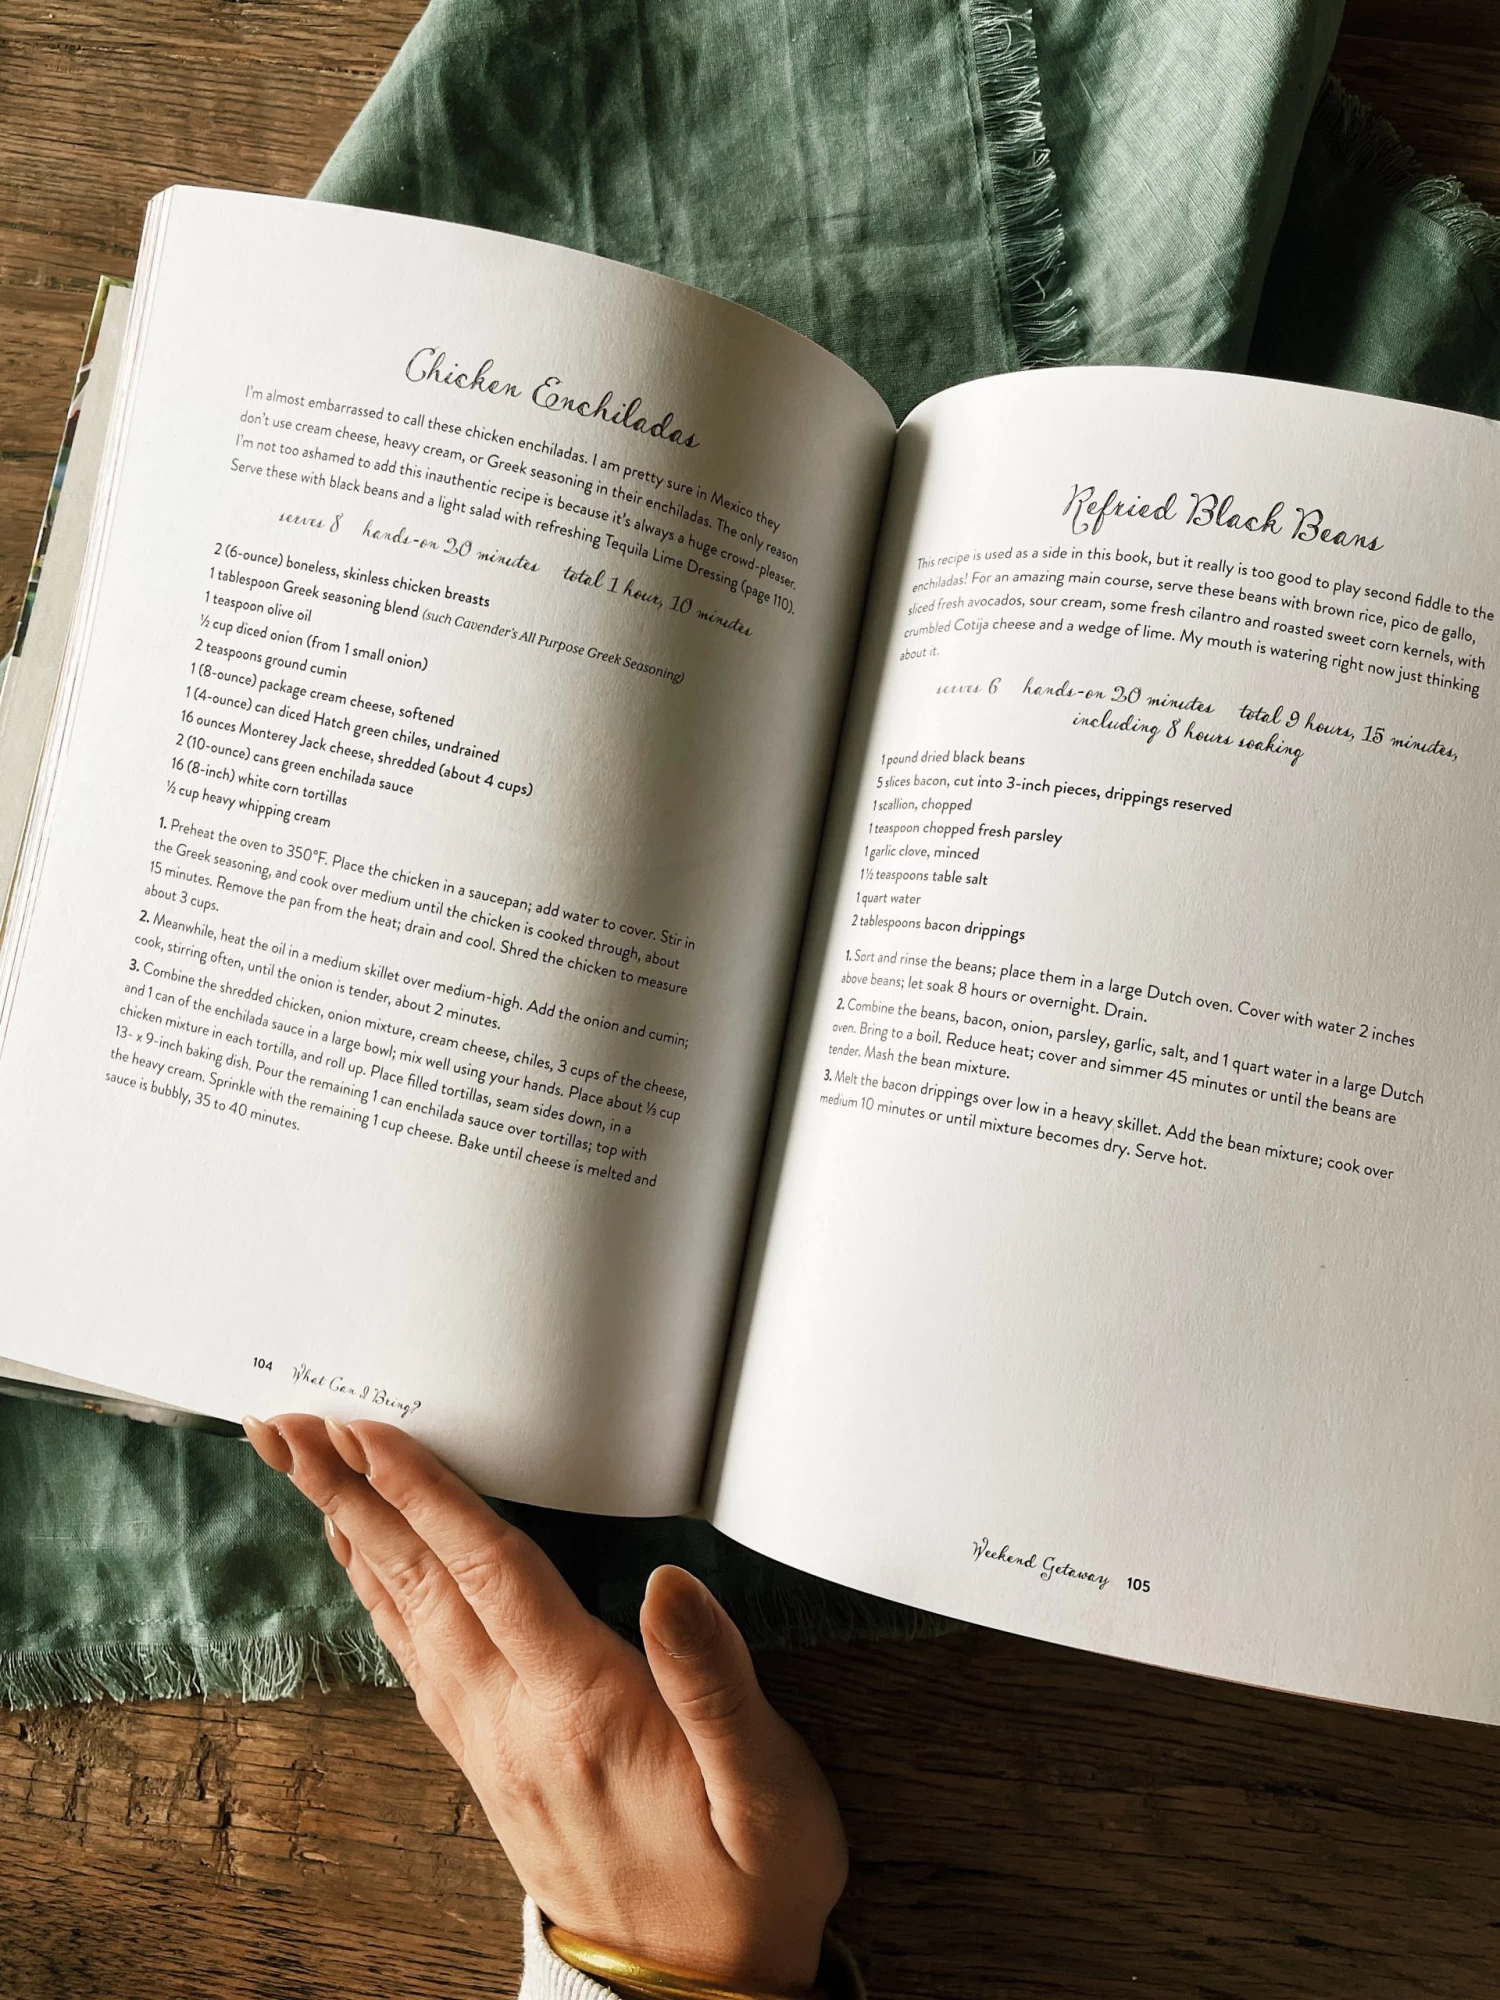 Chicken Enchiladas
I'm almost embarrassed to call these chicken enchiladas. I am pretty sure in Mexico they
don't use cream cheese, heavy cream, or Greek seasoning in their enchiladas. The only reason
I'm not too ashamed to add this inauthentic recipe is because it's always a huge crowd-pleaser.
Serve these with black beans and a light salad with refreshing Tequila Lime Dressing (page 110).
serves 8 hands-on 20 minutes total 1 hour, 10 minutes
2 (6-ounce) boneless, skinless chicken breasts
1 tablespoon Greek seasoning blend (such Cavender's All Purpose Greek Seasoning)
1 teaspoon olive oil
½ cup diced onion (from 1 small onion)
2 teaspoons ground cumin
1 (8-ounce) package cream cheese, softened
1 (4-ounce) can diced Hatch green chiles, undrained
16 ounces Monterey Jack cheese, shredded (about 4 cups)
2 (10-ounce) cans green enchilada sauce
16 (8-inch) white corn tortillas
½ cup heavy whipping cream
1. Preheat the oven to 350°F. Place the chicken in a saucepan; add water to cover. Stir in
the Greek seasoning, and cook over medium until the chicken is cooked through, about
15 minutes. Remove the pan from the heat; drain and cool. Shred the chicken to measure
about 3 cups.
2. Meanwhile, heat the oil in a medium skillet over medium-high. Add the onion and cumin;
cook, stirring often, until the onion is tender, about 2 minutes.
3. Combine the shredded chicken, onion mixture, cream cheese, chiles, 3 cups of the cheese,
and 1 can of the enchilada sauce in a large bowl; mix well using your hands. Place about ⅓ cup
chicken mixture in each tortilla, and roll up. Place filled tortillas, seam sides down, in a
13- x 9-inch baking dish. Pour the remaining 1 can enchilada sauce over tortillas; top with
the heavy cream. Sprinkle with the remaining 1 cup cheese. Bake until cheese is melted and
sauce is bubbly, 35 to 40 minutes.
104 What Can I Bring?
Refried Black Beans
This recipe is used as a side in this book, but it really is too good to play second fiddle to the
enchiladas! For an amazing main course, serve these beans with brown rice, pico de gallo,
sliced fresh avocados, sour cream, some fresh cilantro and roasted sweet corn kernels, with
crumbled Cotija cheese and a wedge of lime. My mouth is watering right now just thinking
about it.
serves 6 hands-on 20 minutes total 9 hours, 15 minutes,
including 8 hours soaking
1 pound dried black beans
5 slices bacon, cut into 3-inch pieces, drippings reserved
1 scallion, chopped
1 teaspoon chopped fresh parsley
1 garlic clove, minced
1½ teaspoons table salt
1 quart water
2 tablespoons bacon drippings
1. Sort and rinse the beans; place them in a large Dutch oven. Cover with water 2 inches
above beans; let soak 8 hours or overnight. Drain.
2. Combine the beans, bacon, onion, parsley, garlic, salt, and 1 quart water in a large Dutch
oven. Bring to a boil. Reduce heat; cover and simmer 45 minutes or until the beans are
tender. Mash the bean mixture.
3. Melt the bacon drippings over low in a heavy skillet. Add the bean mixture; cook over
medium 10 minutes or until mixture becomes dry. Serve hot.
Weekend Getaway 105